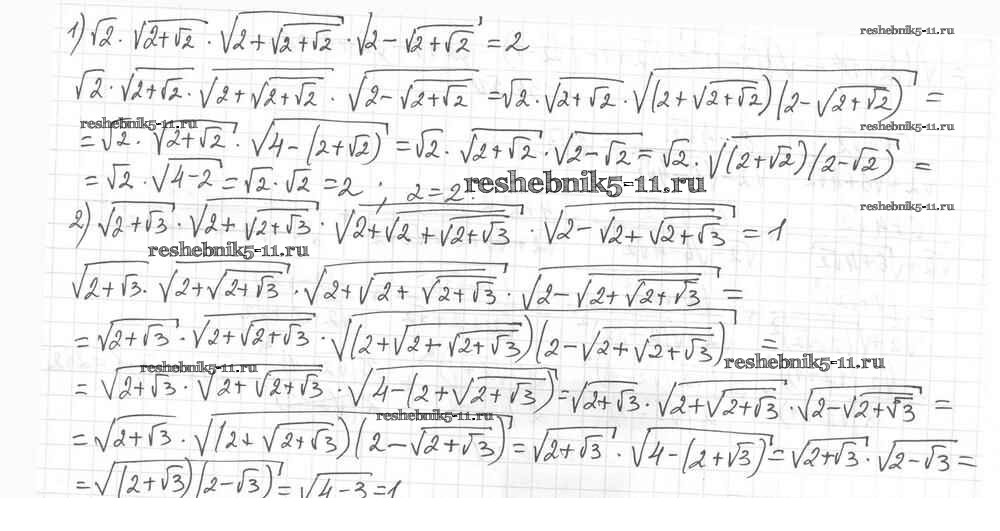 1) √2 · √(2+√2) · √(2+√(2+√2)) · √(2-√(2+√2)) = 2
reshebnik5-11.ru
√2 · √(2+√2) · √(2+√(2+√2)) · √(2-√(2+√2)) = √2 · √(2+√2) · √((2+√(2+√2))(2-√(2+√2))) =
reshebnik5-11.ru
reshebnik5-11.ru
= √2 · √(2+√2) · √(4-(2+√2)) = √2 · √(2+√2) · √(2-√2) = √2 · √((2+√2)(2-√2)) =
= √2 · √(4-2) = √2 · √2 = 2 ; 2=2.
reshebnik5-11.ru
reshebnik5-11.ru
2) √(2+√3) · √(2+√(2+√3)) · √(2+√2+√(2+√3)) · √(2-√(2+√(2+√3))) = 1
reshebnik5-11.ru
√(2+√3) · √(2+√(2+√3)) · √(2+√(2+√(2+√3))) · √(2-√(2+√(2+√3))) =
= √(2+√3) · √(2+√(2+√3)) · √((2+√(2+√(2+√3)))(2-√(2+√(2+√3)))) =
reshebnik5-11.ru
reshebnik5-11.ru
= √(2+√3) · √(2+√(2+√3)) · √(4-(2+√(2+√3))) = √(2+√3) · √(2+√(2+√3)) · √(2-√(2+√3)) =
reshebnik5-11.ru
= √(2+√3) · √((2+√(2+√3))(2-√(2+√3))) = √(2+√3) · √(4-(2+√3)) = √(2+√3) · √(2-√3) =
= √((2+√3)(2-√3)) = √(4-3) = 1